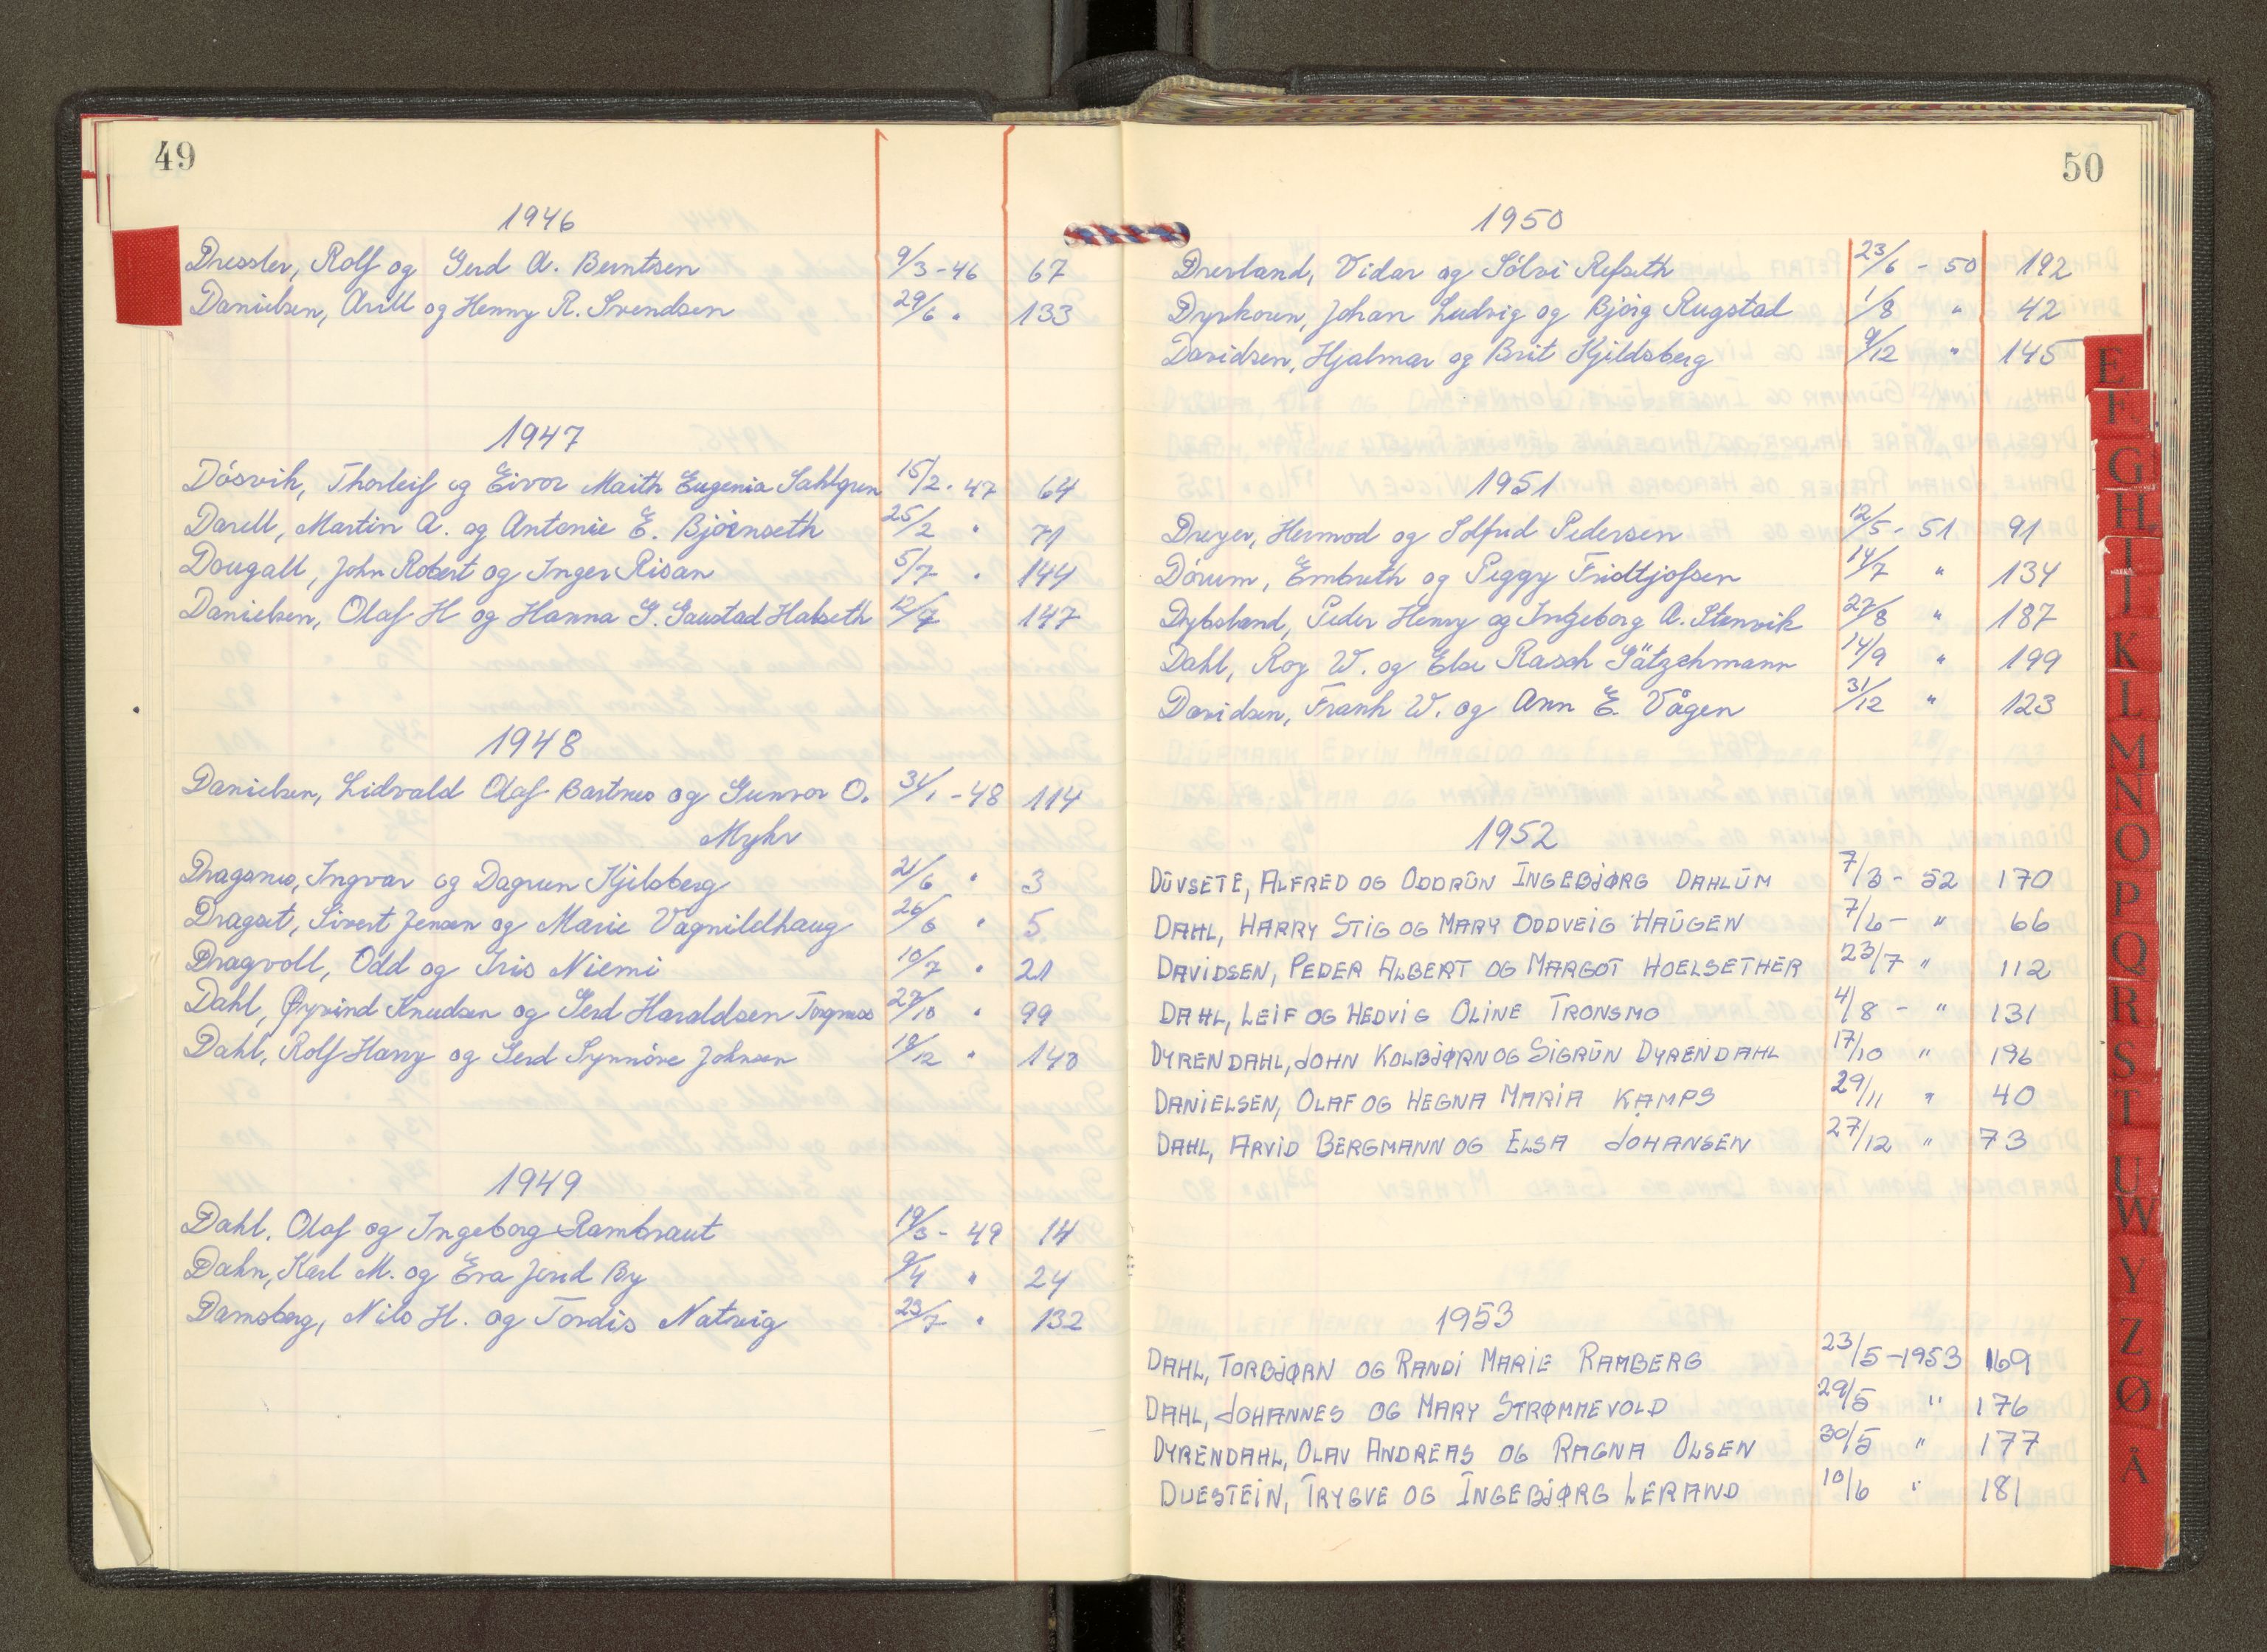 49
1946
Dressler, Rolf og Gerd A. Berntsen 9/3-46 67
Danielsen, Arill og Henny R. Svendsen 29/6 " 133
1947
Dósvik, Thorleif og Eivor Maith Eugenia Sahlgren 15/2 - 47 64
Darell, Martin A. og Antonie E. Bjórnseth 25/2 " 71
Dougall, John Robert og Inger Risan 5/7 " 144
Danielsen, Olaf H og Hanna G. Gaustad Halseth 12/7 147
1948
Danielsen, Lidvald Olaf Bartnes og Gunvor O. 31/1 - 48 114
Myhr
Dragsnes, Ingvar og Dagrun Kjelsberg 21/6 " 3
Dragset, Sivert Jensen og Marie Vognildhaug 26/6 " 5
Dragvoll, Odd og Iris Niemi 10/7 " 21
Dahl, Øyvind Knudsen og Gerd Haraldsen Torgnes 27/10 " 99
Dahl, Rolf Harry og Gerd Synnóve Johnsen 18/12 " 140
1949
Dahl, Olaf og Ingeborg Rambraut 19/3 - 49 14
Dahn, Karl M. og Eva Jorid By 9/4 " 24
Damsberg, Nils H. og Tordis Natvig 23/7 " 132
50
1950
Drevland, Vidar og Sólvi Refseth 23/6 - 50 192
Dyrkorn, Johan Ludvig og Bjórg Rugstad 1/8 " 42
Davidsen, Hjalmar og Brit Kjeldsberg 9/12 " 145
1951
Dreyer, Hermod og Solfrid Pedersen 12/5 - 51 91
Dórum, Embreth og Peggy Fridtjofsen 14/7 " 134
Dybsland, Peder Henry og Ingeborg A. Stenvik 27/8 " 187
Dahl, Roy W. og Else Rasch Götzchmann 14/9 " 199
Davidsen, Frank W. og Ann E. Vågen 31/12 " 123
1952
DŪVSETE, ALFRED OG ODDRŪN INGEBJØRG DAHLŪM 7/3 - 52 170
DAHL, HARRY STIG OG MARY ODDVEIG HAŪGEN 7/6 - " 66
DAVIDSEN, PEDER ALBERT OG MARGOT HOELSETHER 23/7 " 112
DAHL, LEIF OG HEDVIG OLINE TRONSMO 4/8 - " 131
DYRENDAHL, JOHN KOLBJØRN OG SIGRŪN DYRENDAHL 17/10 " 196
DANIELSEN, OLAF OG HEGNA MARIA KAMPS 29/11 " 40
DAHL, ARVID BERGMANN OG ELSA JOHANSEN 27/12 " 73
1953
DAHL, TORBJØRN OG RANDI MARIE RAMBERG 23/5 - 1953 169
DAHL, JOHANNES OG MARY STRØMMEVOLD 29/5 " 176
DYRENDAHL, OLAV ANDREAS OG RAGNA OLSEN 30/5 " 177
DUESTEIN, TRYGVE OG INGEBJØRG LERAND 10/6 " 181
E
F
G
H
I
J
K
L
M
N
O
P
Q
R
S
T
U
W
Y
Z
Ø
Å